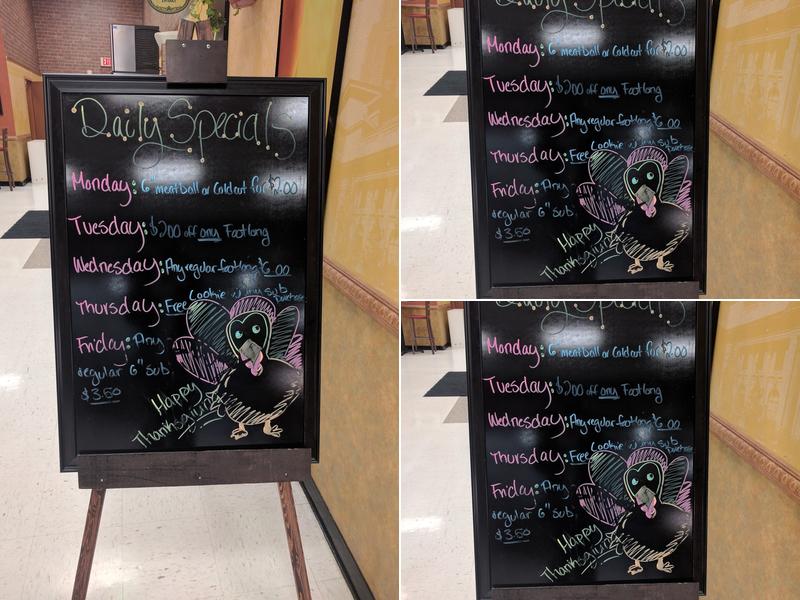 Daily Specials
Monday: 6" meatball or Coldcut for $2.00
Tuesday: $2.00 off any Footlong
Wednesday: Any regular footlong $6.00
Thursday: Free Cookie w/ any Sub Purchase
Friday: Any
regular 6" sub
$3.50
Happy
Thanksgiving
Daily Specials
Monday: 6 meatball or Coldcut for $2.00
Tuesday: $2.00 off any Footlong
Wednesday: Any regular footlong $6.00
Thursday: Free Cookie w/ any Sub Purchase
Friday: Any
regular 6" sub
$3.50
Happy
Thanksgiving
Daily Specials
Monday: 6 meatball or Coldcut for $2.00
Tuesday: $2.00 off any Footlong
Wednesday: Any regular footlong $6.00
Thursday: Free Cookie w/ any Sub Purchase
Friday: Any
regular 6" sub
$3.50
Happy
Thanksgiving